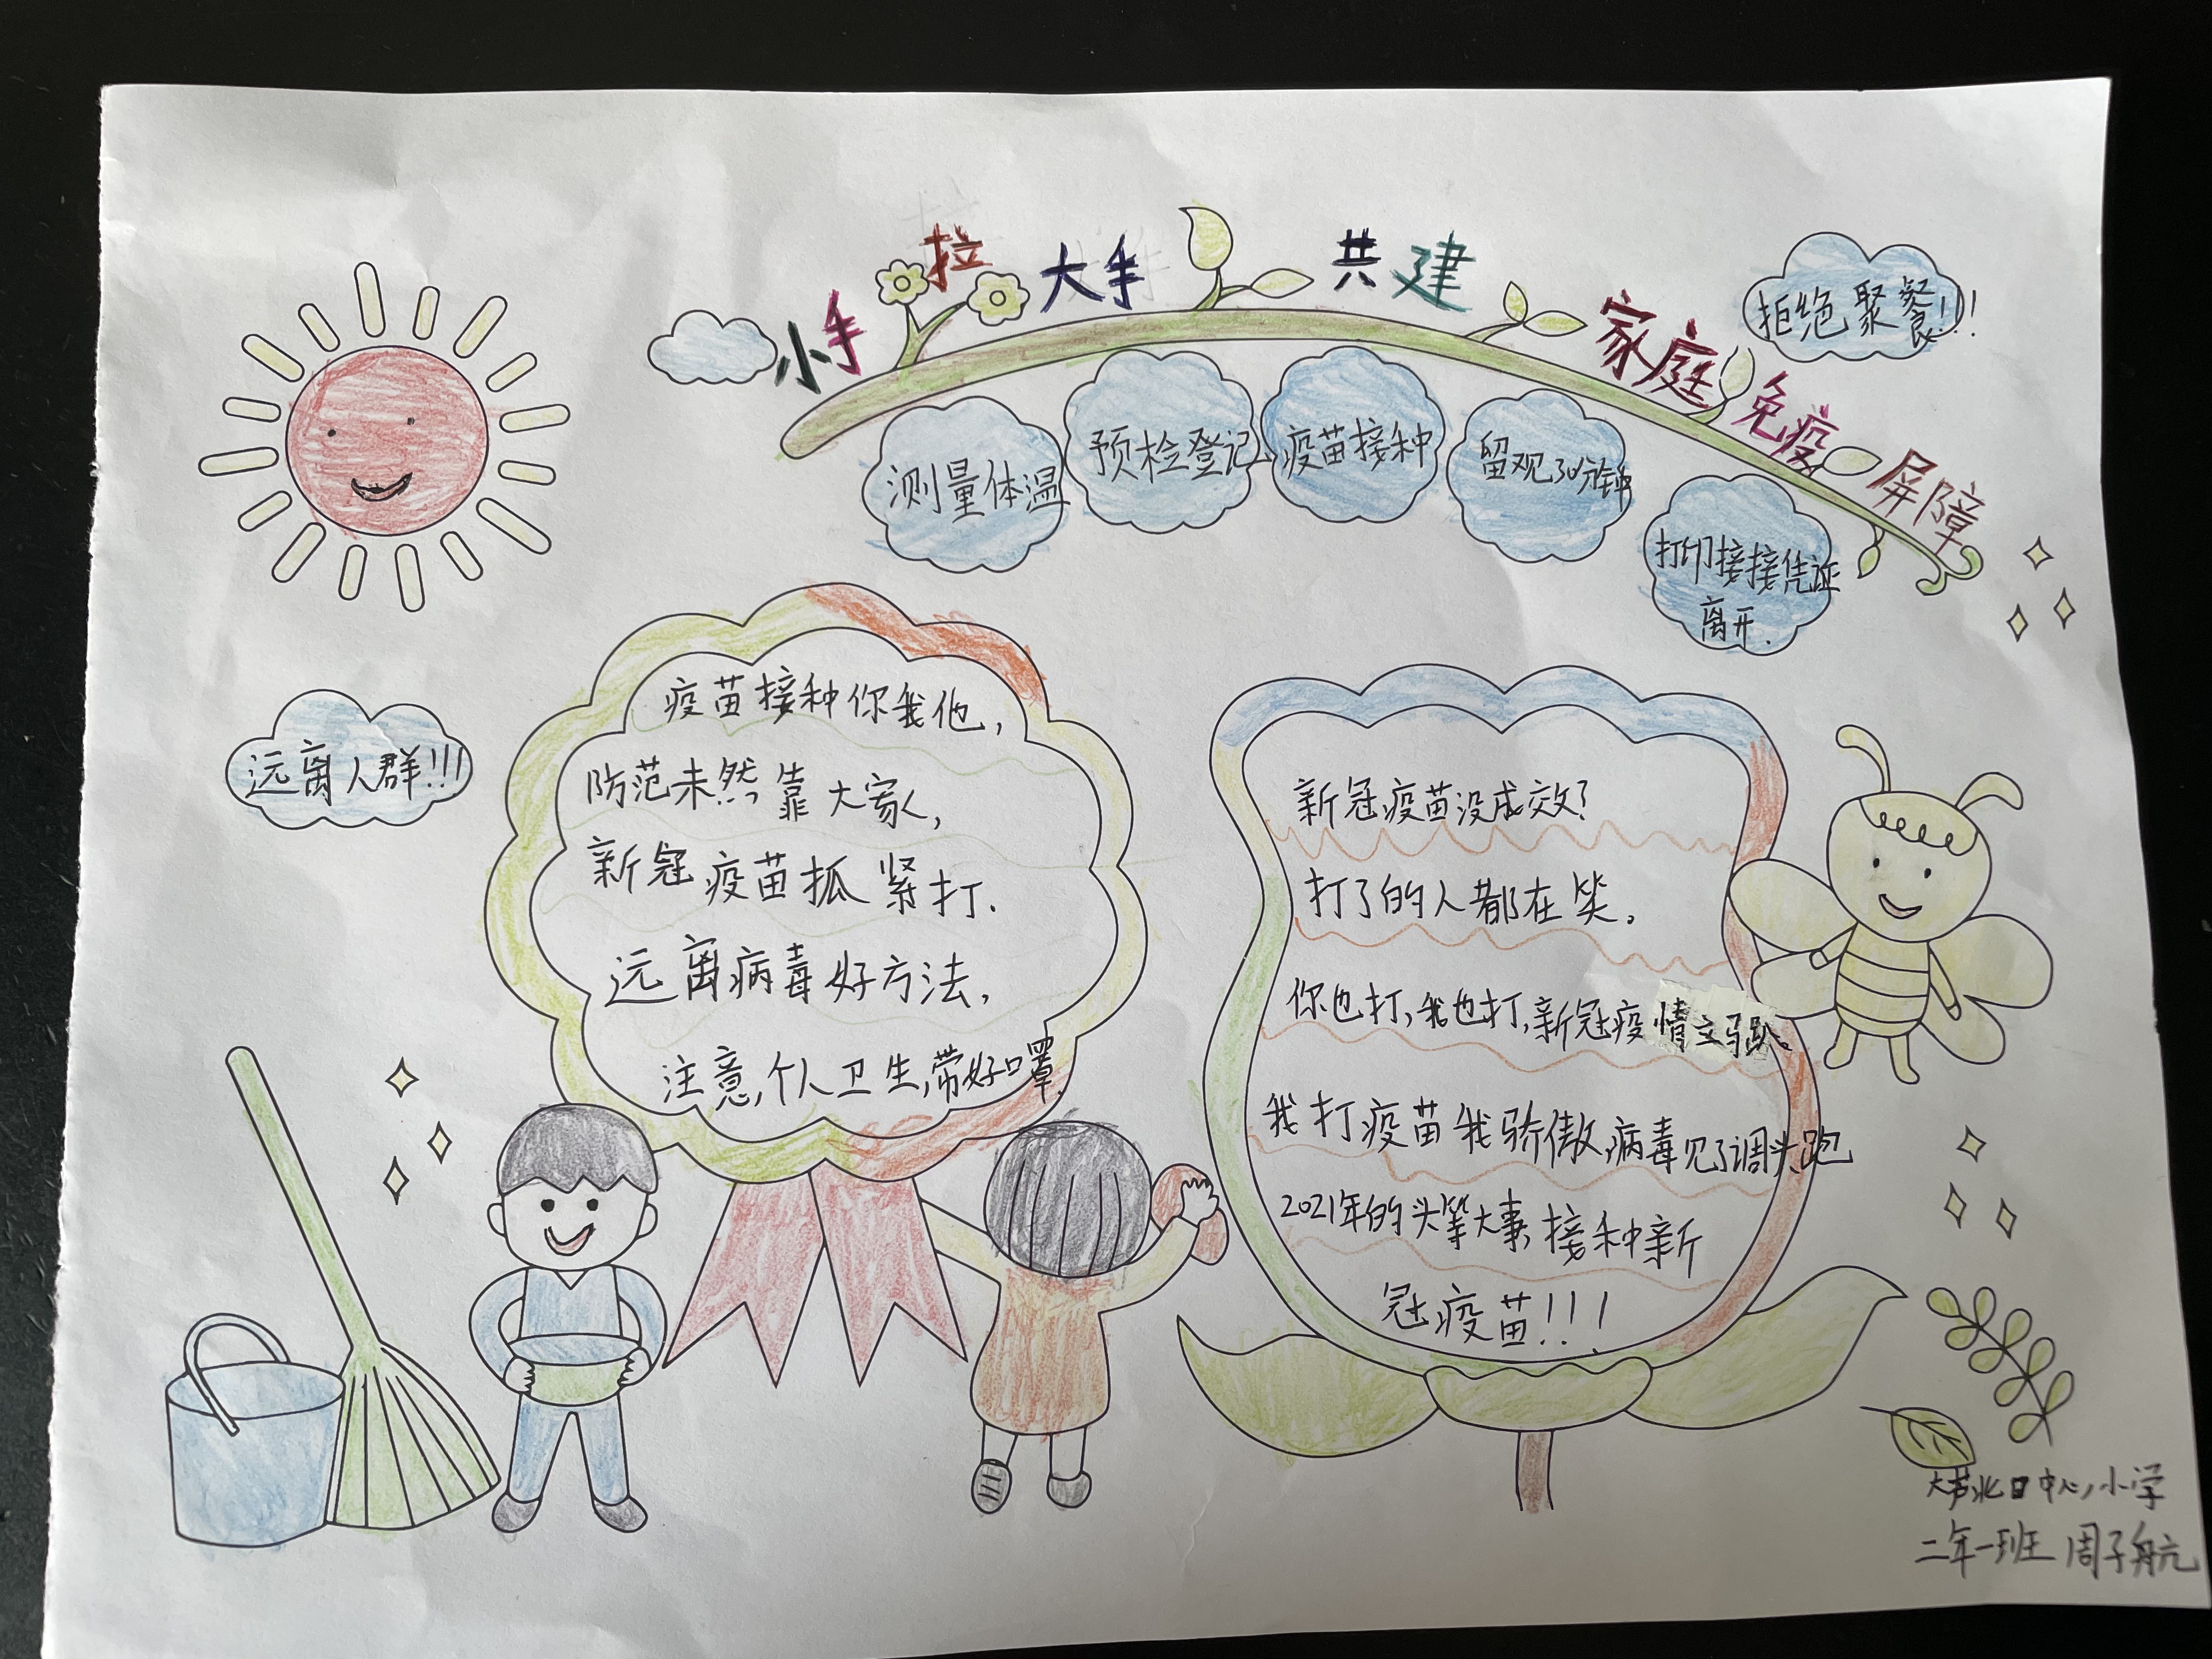 小手拉大手 共建家庭免疫屏障
拒绝聚餐!!!
测量体温
预检登记
疫苗接种
留观30分钟
打印接接凭证
离开.
远离人群!!!
疫苗接种你我他,
防范未然靠大家,
新冠疫苗抓紧打.
远离病毒好方法,
注意,个人卫生,带好口罩.
新冠疫苗没成效?
打了的人都在笑。
你也打,我也打,新冠疫情立马趴。
我打疫苗我骄傲,病毒见了调头跑
2021年的头等大事,接种新
冠疫苗!!!
中心小学
二年一班 周子航